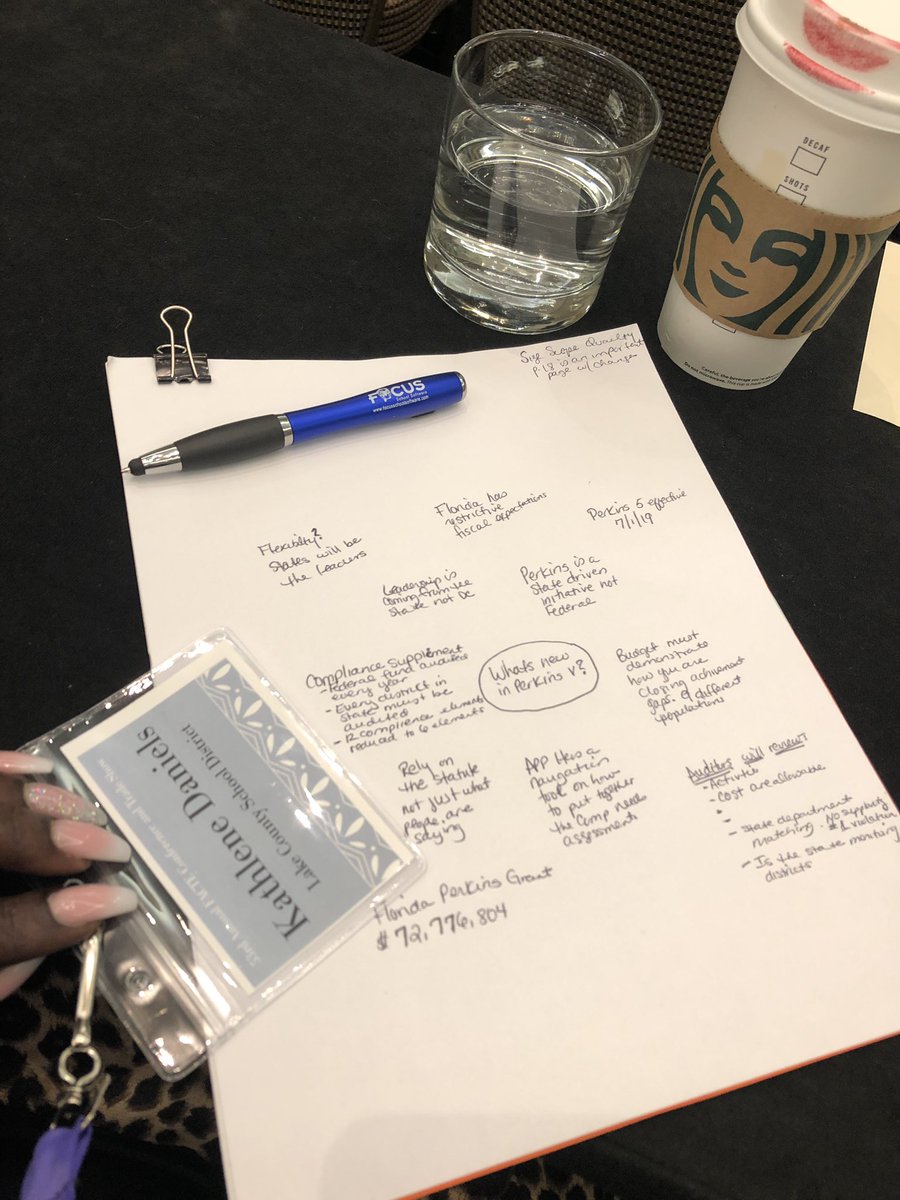 DECAF
SHOTS
Careful, the beverage you're
Size Scope Quality
p.18 is an important
page w/ changes
FOCUS
School Software
www.focusschoolsoftware.com
Florida has
restrictive
fiscal expectations
Perkins 5 effective
7/1/19
Flexibilty?
States will be
the leaders
Leadership is
coming from the
state not DC
Perkins is a
state driven
initiative not
Federal
Compliance supplement
- Federal fund audited
every year
- Every district in
state must be
audited
- 12 complience elements
reduced to 6 elements
Whats new
in Perkins V?
Budget must
demonstrate
how you are
closing achievment
gaps. of different
populations
Rely on
the statute
not just what
people are
saying
APP Has a
navigation
took on how
to put together
the Comp needs
assessment
Auditors will review?
- Activities
- Cost are allowable
- State department
matching. No supplanting
is a violation
- Is the State monitoring
districts
Florida Perkins Grant
$72,776,804
53rd Annual FACTE Conference and Trade Show
Kathlene Daniels
Lake County School District